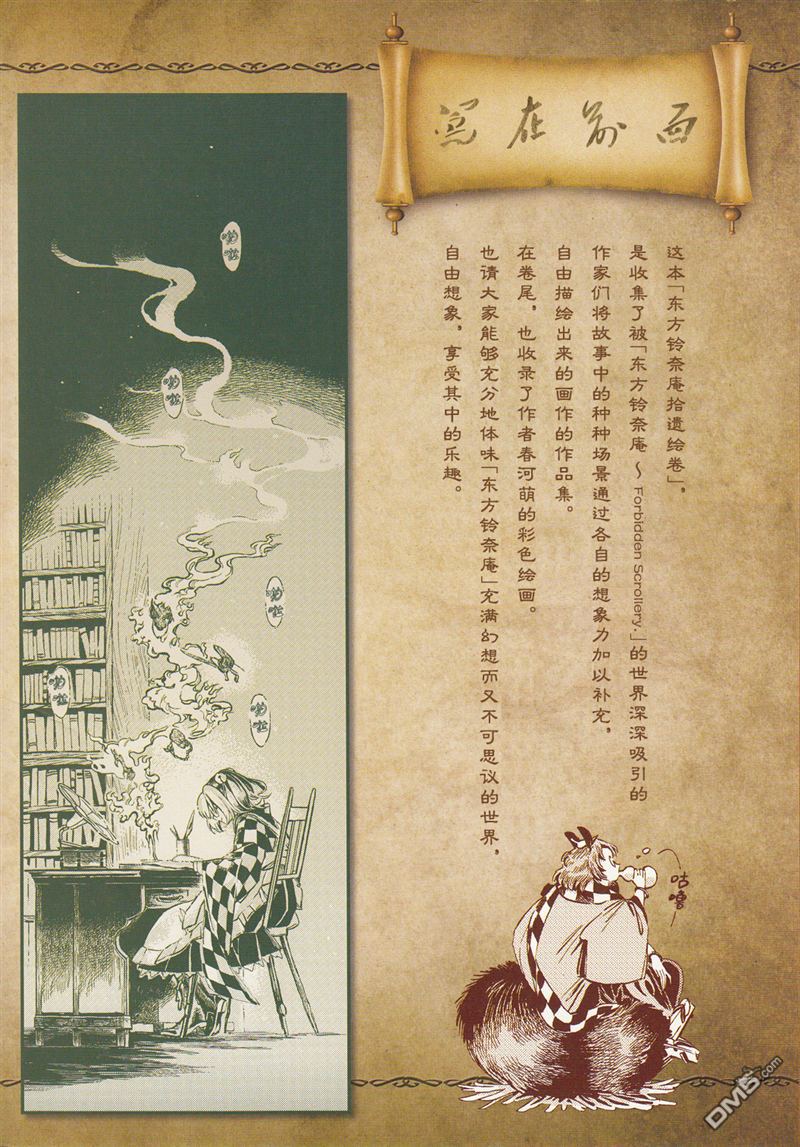 写在前面
这本「东方铃奈庵拾遗绘卷」，
是收集了被「东方铃奈庵～Forbidden Scrollery.」的世界深深吸引的
作家们将故事中的种种场景通过各自的想象力加以补充，
自由描绘出来的画作的作品集。
在卷尾，也收录了作者春河萌的彩色绘画。
也请大家能够充分地体味「东方铃奈庵」充满幻想而又不可思议的世界，
自由想象，享受其中的乐趣。
咕噜
DM5.com